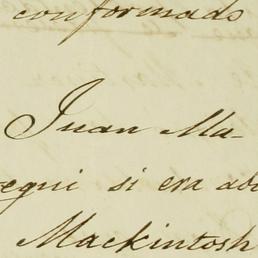 conformados
Juan Ma-
egui si era
Mackintosh